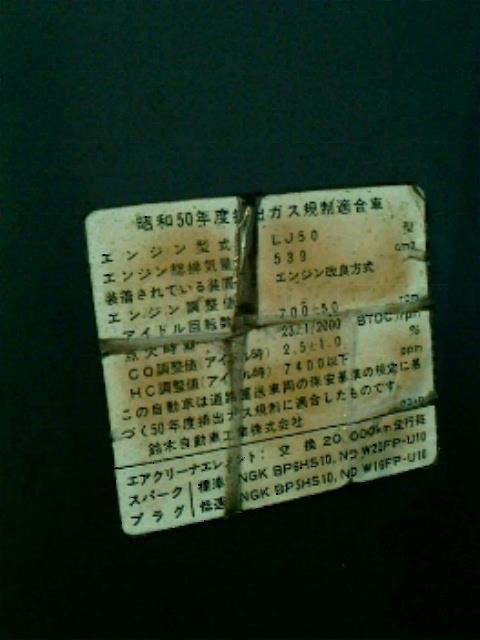 昭和50年度排出ガス規制適合車
エンジン型式 LJ50 型
エンジン総排気量 539 cm3
装着されている装置 エンジン改良方式
エンジン調整値
アイドル回転数 700±50 rpm
点火時期 BTDC/rpm
CO調整値(アイドル時) 2.5±1.0 %
HC調整値(アイドル時) 7400以下 ppm
この自動車は道路運送車両の保安基準の規定に基
づく50年度排出ガス規制に適合したものです。
鈴木自動車工業株式会社
エアクリーナエレメント: 交換20,000km走行毎
スパーク 標準 NGK BP6HS10, ND W20FP-U10
プラグ 低速 NGK BP5HS10, ND W16FP-U10